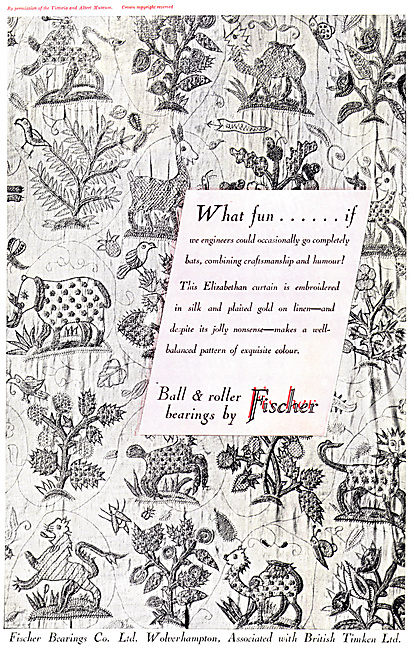 By permission of the Victoria and Albert Museum. Crown copyright reserved
What fun . . . . . . if
we engineers could occasionally go completely
bats, combining craftsmanship and humour!
This Elizabethan curtain is embroidered
in silk and plaited gold on linen—and
despite its jolly nonsense—makes a well-
balanced pattern of exquisite colour.
Ball & roller
bearings by Fischer
Fischer Bearings Co. Ltd. Wolverhampton, Associated with British Timken Ltd.